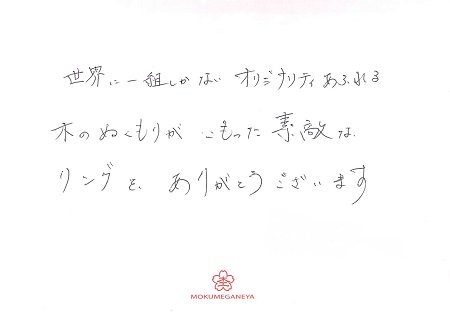 世界に一組しかない オリジナリティあふれる
木のぬくもりが こもった素敵な
リングを、ありがとうございます
MOKUMEGANEYA